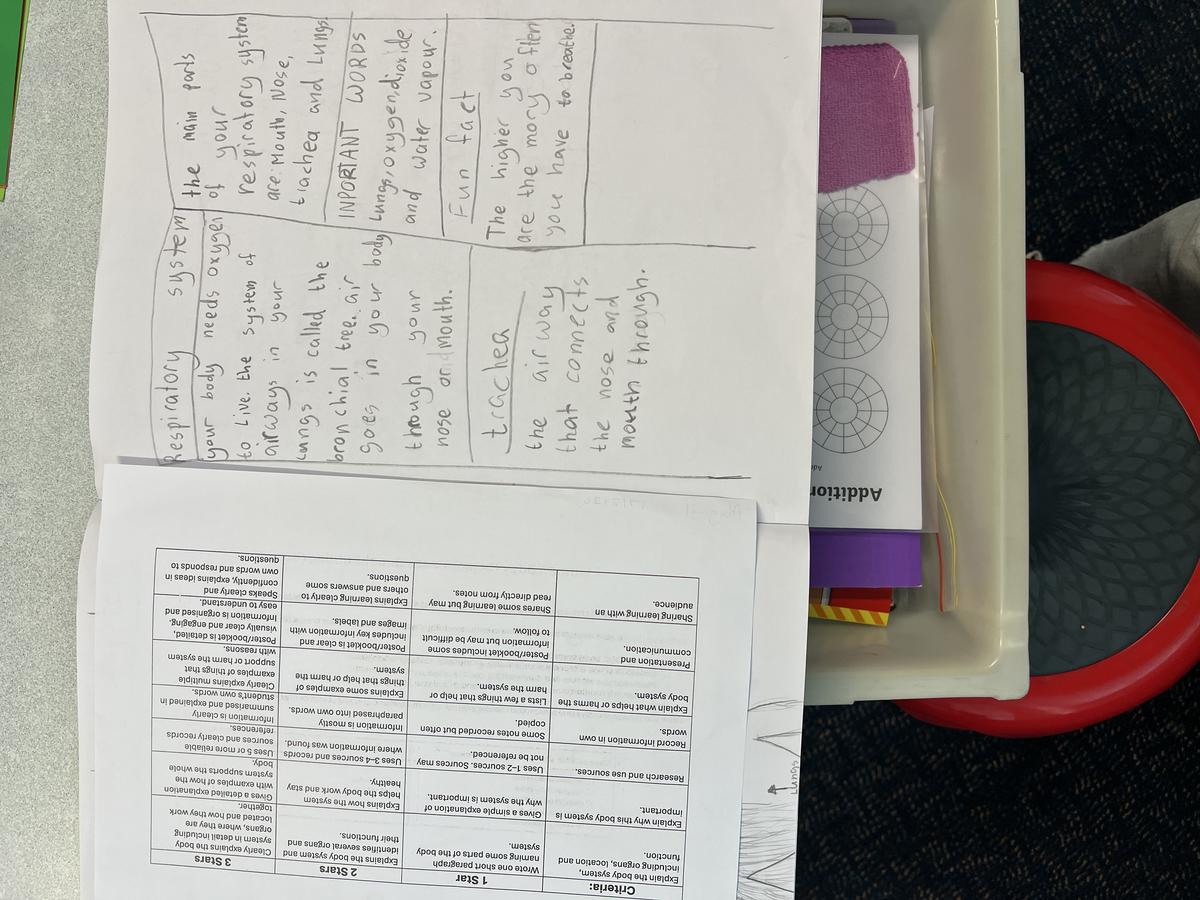 Respiratory system
your body needs oxygen
to live. the system of
airways in your
lungs is called the
bronchial tree. air
goes in your body
through your
nose and mouth.
trachea
the airway
that connects
the nose and
mouth through.
the main parts
of your
respiratory system
are: Mouth, Nose,
trachea and Lungs.
INPORTANT WORDS
Lungs, oxygen, dioxide
and water vapour.
Fun fact
The higher you
are the mory often
you have to breathe.
Criteria:
1 Star
2 Stars
3 Stars
Explain the body system,
including organs, location and
function.
Wrote one short paragraph
naming some parts of the body
system.
Explains the body system and
identifies several organs and
their functions.
Clearly explains the body
system in detail including
organs, where they are
located and how they work
together.
Explain why this body system is
important.
Gives a simple explanation of
why the system is important.
Explains how the system
helps the body work and stay
healthy.
Gives a detailed explanation
with examples of how the
system supports the whole
body.
Research and use sources.
Uses 1–2 sources. Sources may
not be referenced.
Uses 3–4 sources and records
where information was found.
Uses 5 or more reliable
sources and clearly records
references.
Record information in own
words.
Some notes recorded but often
copied.
Information is mostly
paraphrased into own words.
Information is clearly
summarised and explained in
student's own words.
Explain what helps or harms the
body system.
Lists a few things that help or
harm the system.
Explains some examples of
things that help or harm the
system.
Clearly explains multiple
examples of things that
support or harm the system
with reasons.
Presentation and
communication.
Poster/booklet includes some
information but may be difficult
to follow.
Poster/booklet is clear and
includes key information with
images and labels.
Poster/booklet is detailed,
visually clear and engaging.
Information is organised and
easy to understand.
Sharing learning with an
audience.
Shares some learning but may
read directly from notes.
Explains learning clearly to
others and answers some
questions.
Speaks clearly and
confidently, explains ideas in
own words and responds to
questions.
Lungs
Addition